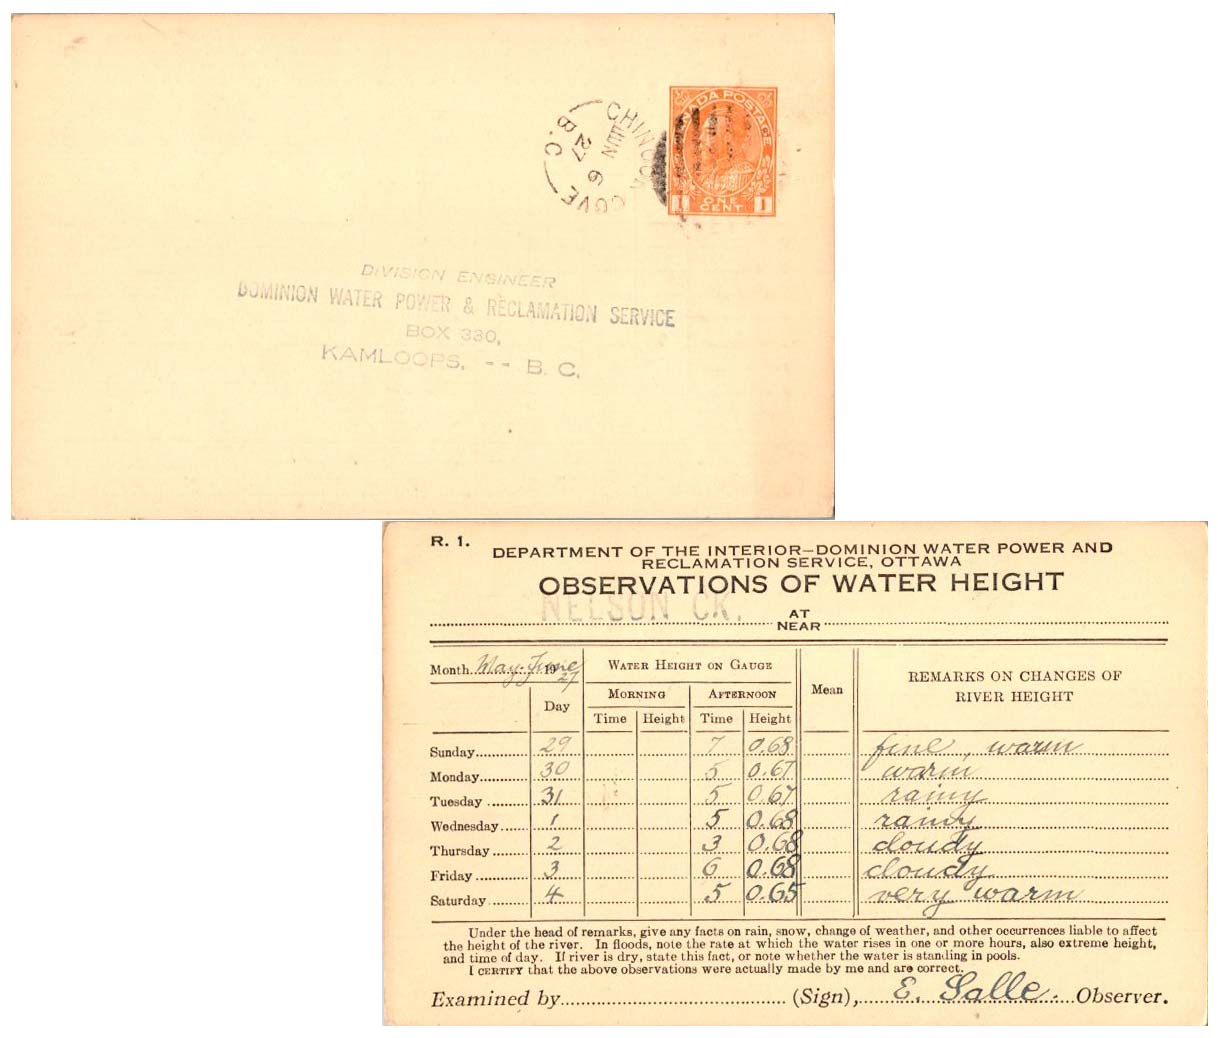 CANADA POSTAGE
ONE
CENT
1 1
CHINOOK COVE
JUN 6
27
B.C
DIVISION ENGINEER
DOMINION WATER POWER & RECLAMATION SERVICE
BOX 330,
KAMLOOPS, -- B. C.
R. 1.
DEPARTMENT OF THE INTERIOR—DOMINION WATER POWER AND
RECLAMATION SERVICE, OTTAWA
OBSERVATIONS OF WATER HEIGHT
NELSON CK. AT
NEAR
Month May-June 19 27
WATER HEIGHT ON GAUGE
REMARKS ON CHANGES OF
RIVER HEIGHT
Day MORNING AFTERNOON Mean
Time Height Time Height
Sunday 29 7 0.68 fine, warm
Monday 30 5 0.67 warm
Tuesday 31 5 0.67 rainy
Wednesday 1 5 0.68 rainy
Thursday 2 3 0.68 cloudy
Friday 3 6 0.68 cloudy
Saturday 4 5 0.65 very warm
Under the head of remarks, give any facts on rain, snow, change of weather, and other occurrences liable to affect
the height of the river. In floods, note the rate at which the water rises in one or more hours, also extreme height,
and time of day. If river is dry, state this fact, or note whether the water is standing in pools.
I CERTIFY that the above observations were actually made by me and are correct.
Examined by (Sign), E. Salle. Observer.